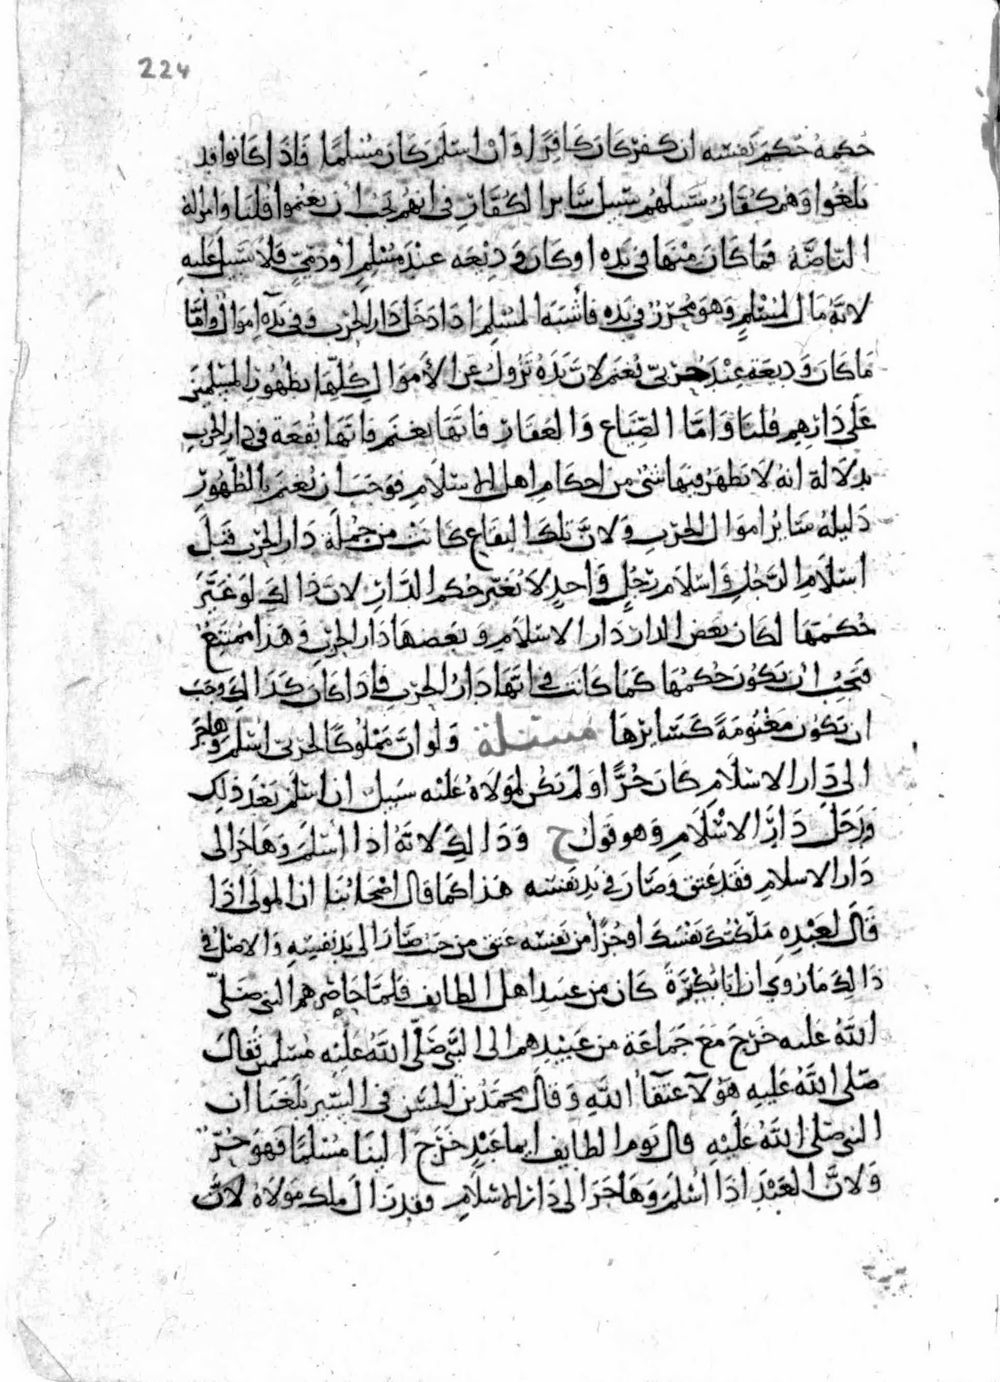 224
حُكمهُ حُكمَ نَفسه ان كفر كان كافِرًا وَانْ اسلَمَ كَان مُسْلمًا فَاذا كانوا قد
بلغُوا وَهُم كفّار سَبيلهُم سَبيل سَايرا لكُفّارِ في انهم يجبُ ان يغنموا قلنا وامواله
الناضَّة فما كان منْها في يَدِه او كان وَدِيْعه عندَ مُسْلمٍ اوْ ذمّيٍ فلا سَبيل عَليهِ
لانّهُ مَال لمسْلمٍ وَهوَ مُحرَزٌ في يَدِه فاشْبَه المسْلِمَ اذا دخل دَار الحَرب وفي يَدِه اموال وامّا
مَا كان وَديعَة عِنْدَ حربيّ يُغنم لانّ يَدَهُ تَزُولُ عن الأموَالِ كلّها بظهُور المسْلمينَ
عَلى دَارِهِم قلنا وَامّا الضّيَاع وَالعقَارُ فانّها يغنَم فانّها بُقعَة في دار الحَربِ
بدلالة انهُ لا يَظهَرُ فيهَا شئٌ من احكامِ اهل الاسْلامِ فوجَبَ ان يُغنم بالظّهُورِ
دَليلهُ سَايرُ اموَال الحَربِ وَلانّ تلكَ البقاع كانتْ من جُملة دَار الحَرْب قبْلَ
اسْلامِ الرّجُلِ وَاسْلام رَجُلٍ وَاحدٍ لا يُغيّر حُكم الدّارِ لانّ ذالكَ لوْ غيّرَ
حُكمهَا لكان بَعض الدار دَار الاسْلامِ وبَعضهَا دَار الحَرْبِ وَهَذا ممْتَنعٌ
فيَجبُ انْ يَكُون حُكمُهَا كَمَا كانت في انّها دَارُ الحَرْب فاذا كان كذالكَ وجبَ
ان تكُون مَغْنُومَةً كسَايرهَا مسئلة وَلوْ انّ مَمْلُوكًا لحربيّ اسْلم وهاجرَ
الى دَار الاسْلامِ كان حُرًّا ولمْ يكن لموْلاهُ عليْه سَبيل ان اسْلمَ بَعْدَ ذلكَ
وَدَخلَ دَارَ الاسْلامِ وهو قول ح وَذالكَ لانّهُ اذا اسْلمَ وَهَاجَرَ الى
دَار الاسلامِ فقدْ عتق وَصَارَ في يَد نفسه هَذا كما قال اصْحابُنا ان المولَى اذا
قَالَ لعَبْدهِ مَلّكتُكَ نفسَكَ او جُزًا من نفسه عتق من حيث صَارَ الى يَد نفسهِ وَالاصْل في
ذالكَ مَا رُوي ان ابا بَكْرَةَ كان من عبيد اهل الطايف فلمّا حَاصَرهم النبي صَلّى
اللهُ عليه خَرجَ مَع جَماعَة من عَبيدهم الى النّبيّ صَلّى اللهُ عَليْه مُسْلمين فقالَ
صَلى اللهُ عَليهِ هؤلآ عُتقاُ اللهِ وَقال محمّدُ بن الحسَن في السّيرِ بَلغَنا ان
النبي صَلى اللهُ عَلَيْهِ قال يَوم الطايف ايما عَبْدٍ خرَج الينَا مُسْلمًا فهوَ حُرٌّ
وَلانّ العَبْدَ اذا اسْلمَ وَهَاجَرَ الى دَار الاسْلامِ فقدْ زال مِلك مَوْلاهُ لانّ